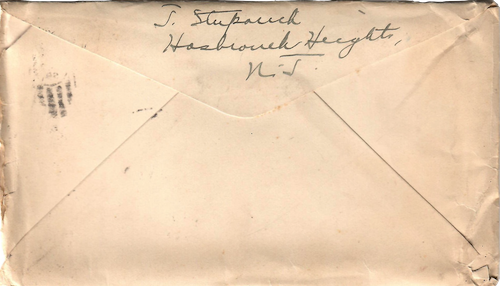 J. Stuparick
Hasbrouck Heights,
N.J.